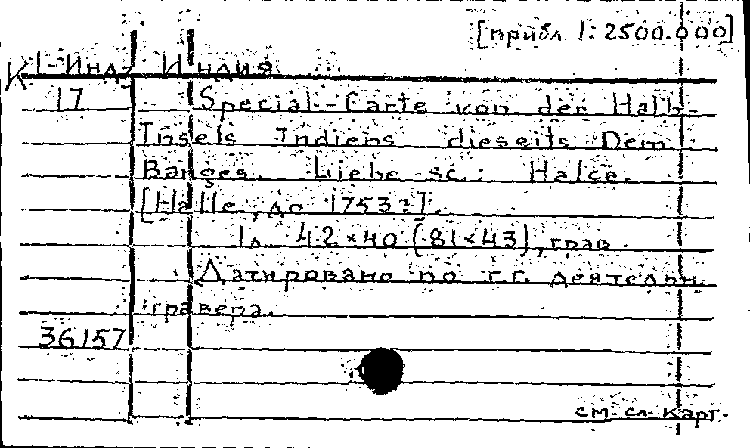 [прибл 1:2500.000]
К 1-Инд. Индия.
17 Special-Carte von der Halb-
Insels Indiens dieseits Dem
Banges. Liebe sc.: Halse.
[Halle, до 1753?].
1л. 42×40 (81×43), грав.
Датировано по г.г. деятельн.
гравера.
36157
см. сл. карт.